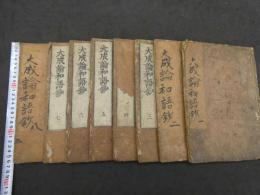 大成論和語鈔一
大成論和語鈔二
大成論和語鈔
三
大成論和語鈔
四
大成論和語鈔
五
大成論和語鈔
六
大成論和語鈔
七
大成論和語鈔八